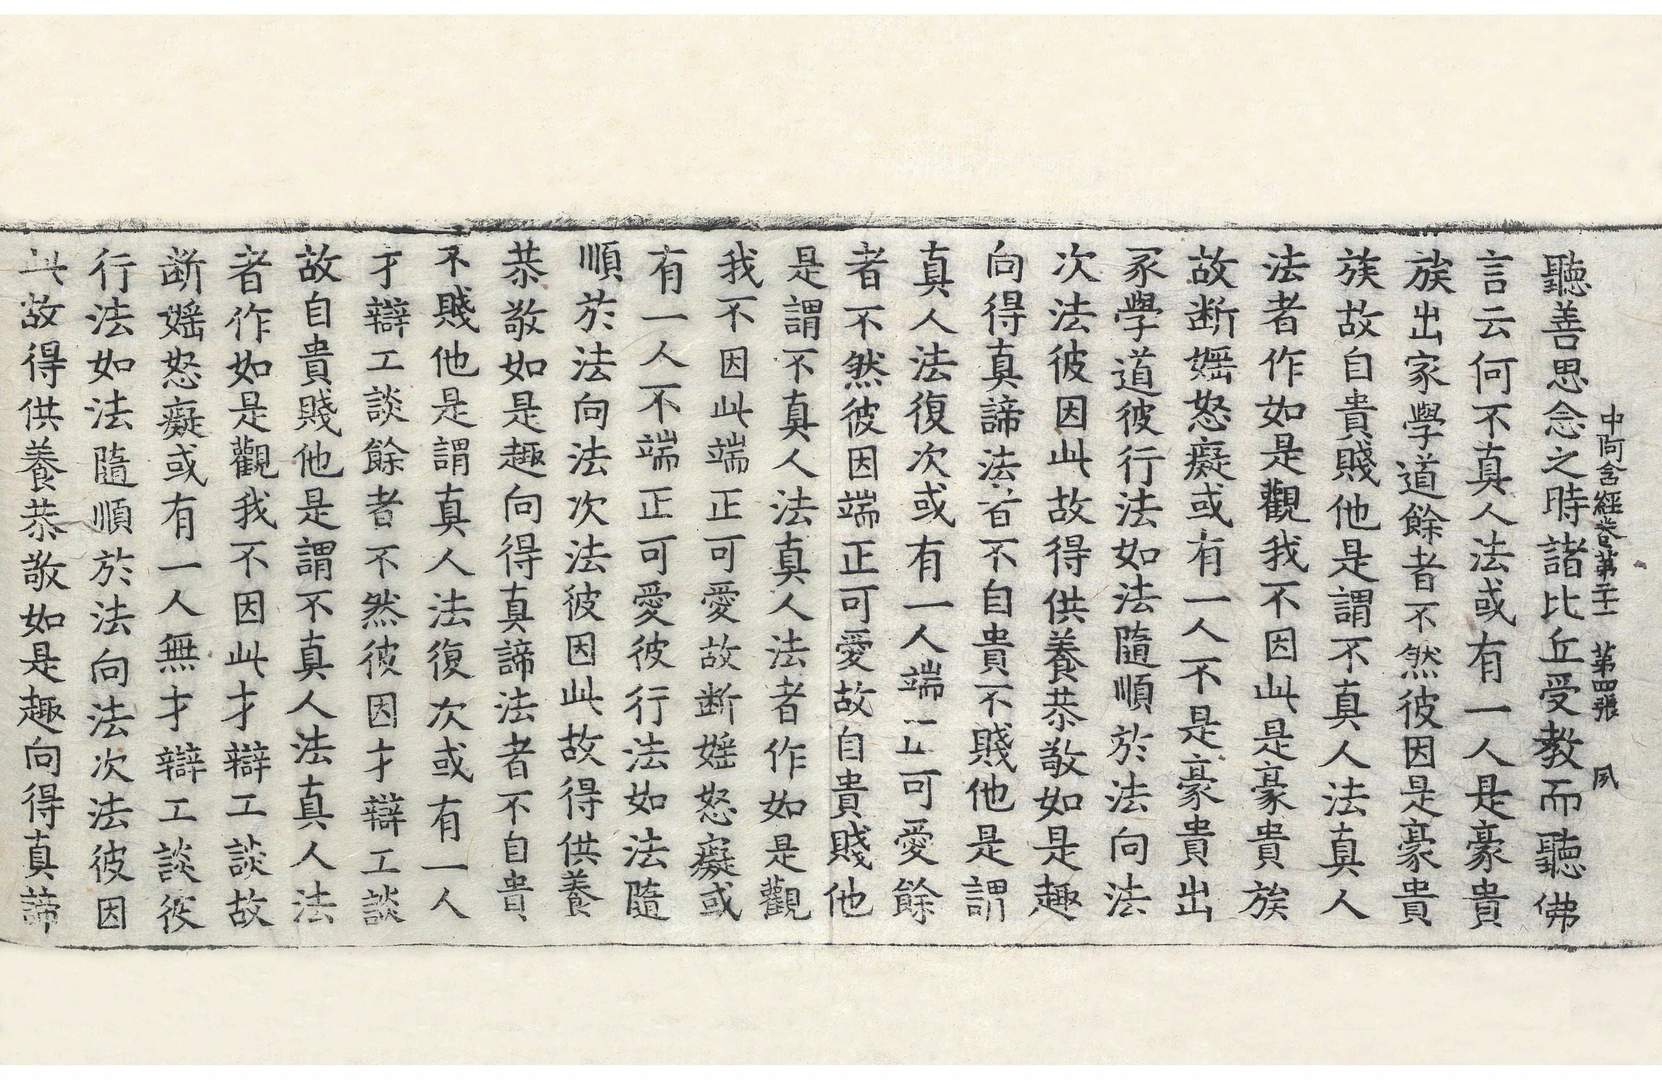 中阿含經卷第二十一 第四張 夙
聽善思念之時諸比丘受教而聽佛
言云何不真人法或有一人是豪貴
族出家學道餘者不然彼因是豪貴
族故自貴賤他是謂不真人法真人
法者作如是觀我不因此是豪貴族
故断婬怒癡或有一人不是豪貴出
家學道彼行法如法隨順於法向法
次法彼因此故得供養恭敬如是趣
向得真諦法者不自貴不賤他是謂
真人法復次或有一人端正可愛餘
者不然彼因端正可愛故自貴賤他
是謂不真人法真人法者作如是觀
我不因此端正可愛故断婬怒癡或
有一人不端正可愛彼行法如法隨
順於法向法次法彼因此故得供養
恭敬如是趣向得真諦法者不自貴
不賤他是謂真人法復次或有一人
才辯工談餘者不然彼因才辯工談
故自貴賤他是謂不真人法真人法
者作如是觀我不因此才辯工談故
断婬怒癡或有一人無才辯工談彼
行法如法隨順於法向法次法彼因
此故得供養恭敬如是趣向得真諦